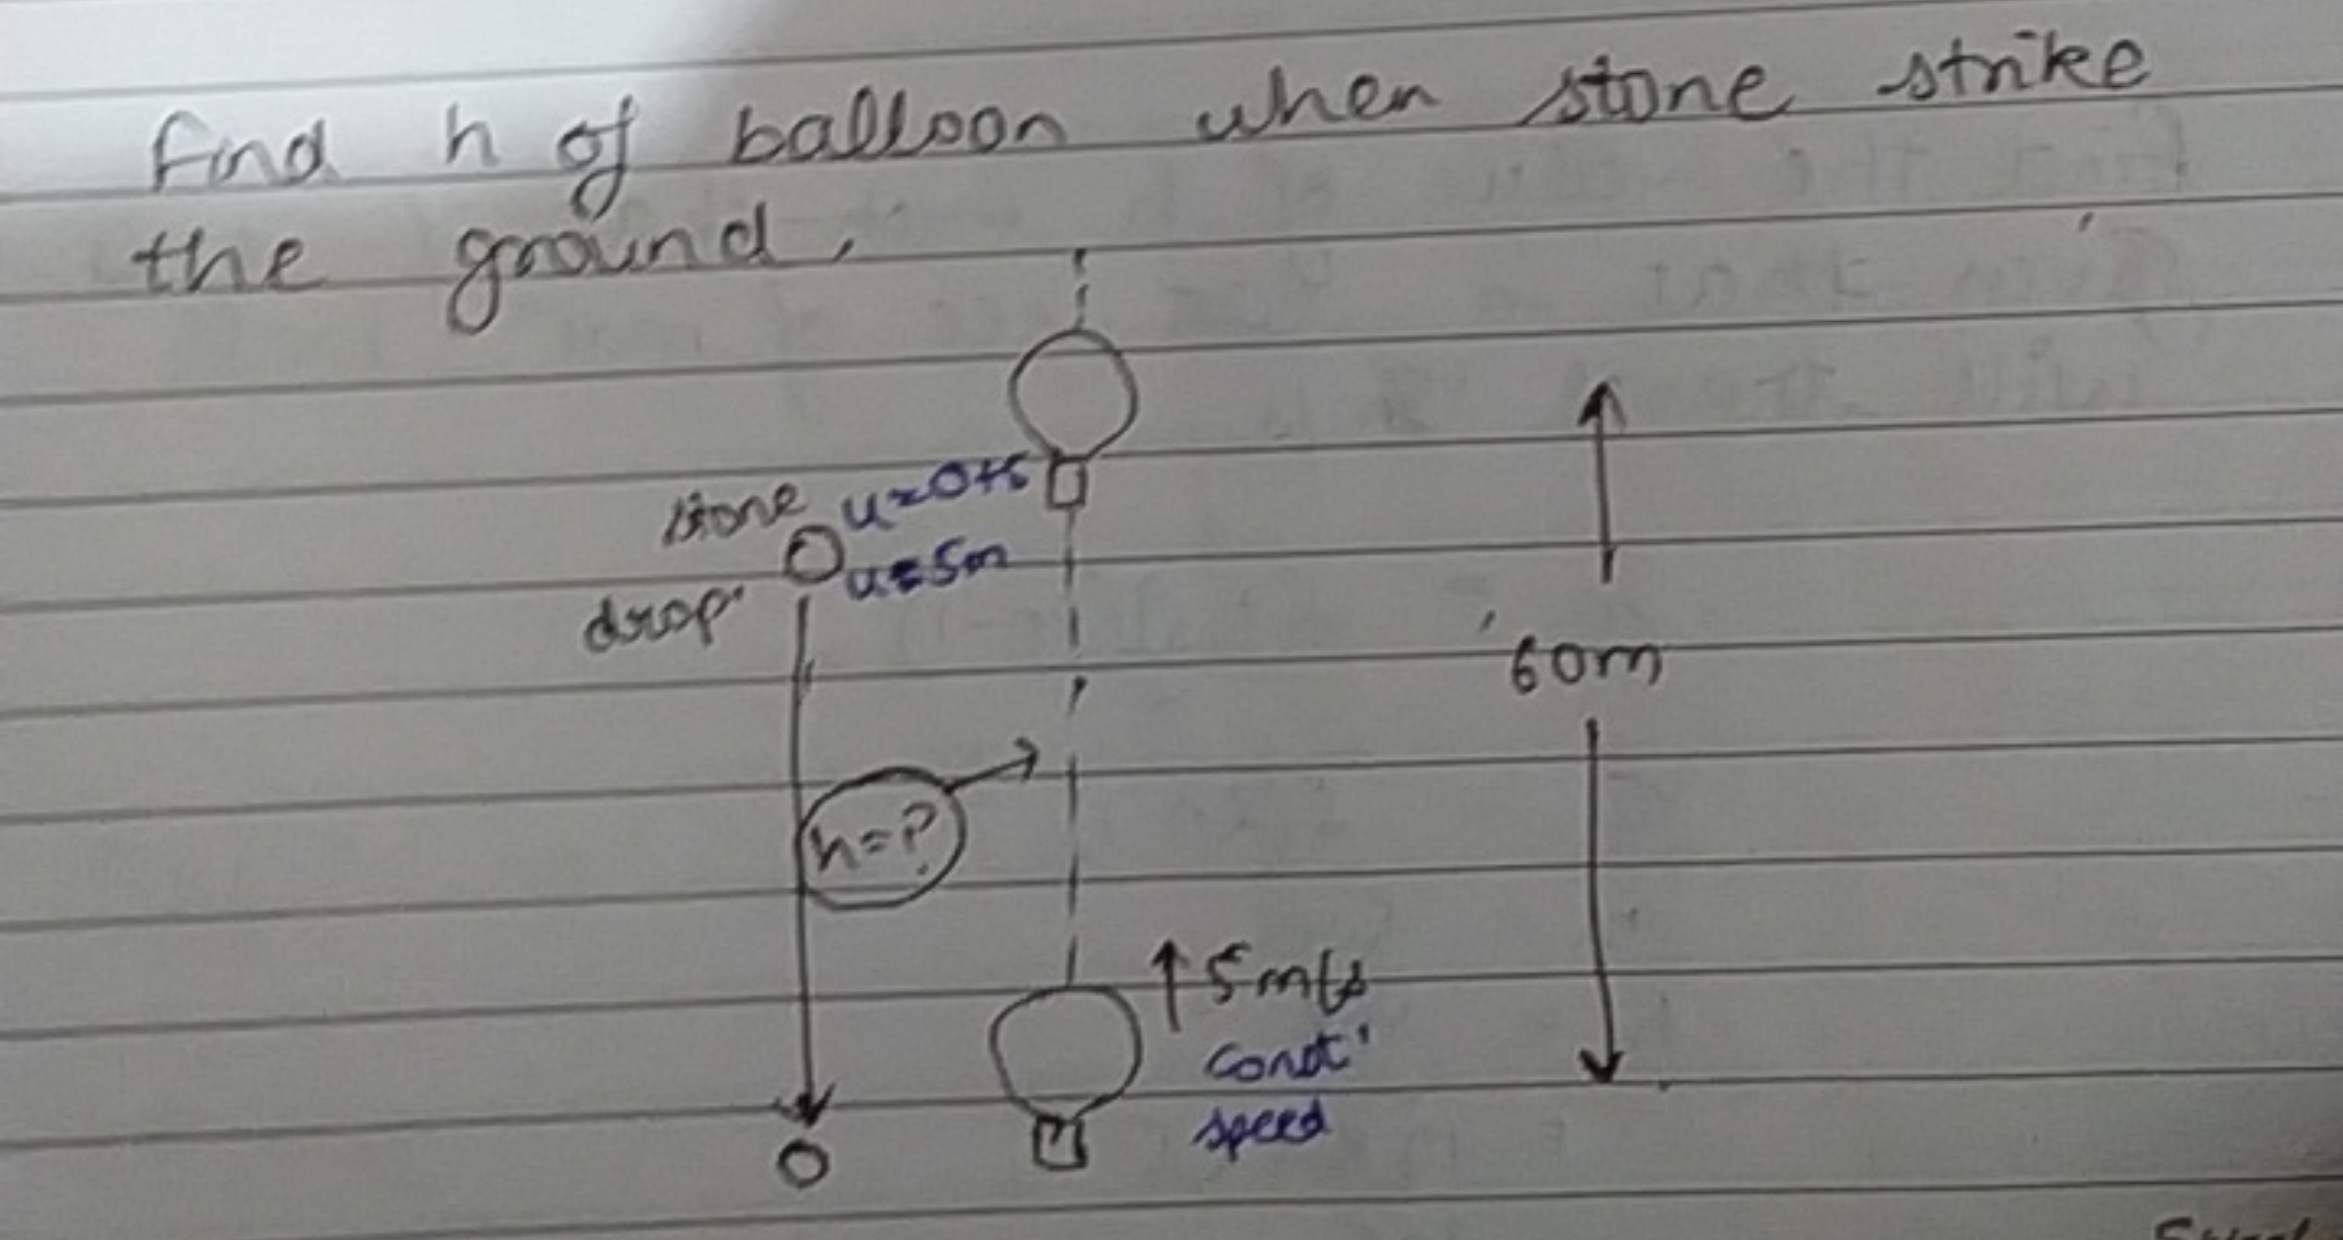 Find h of balloon when stone strike
the ground,
stone u=0+5
u=5m
drop
60m
h=?
5m/s
const'
speed